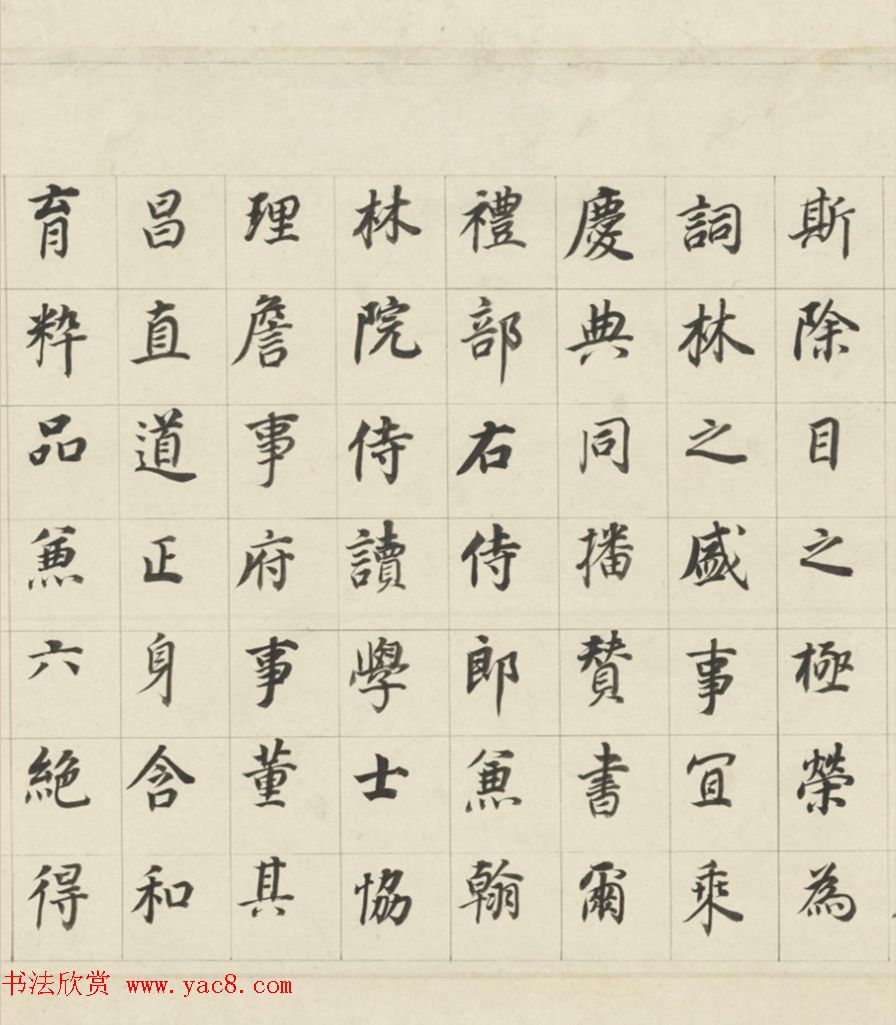 斯除目之極榮為
詞林之盛事宜乘
慶典同播贊書爾
禮部右侍郎兼翰
林院侍讀學士協
理詹事府事董其
昌直道正身含和
育粹品兼六絕得
书法欣赏 www.yac8.com